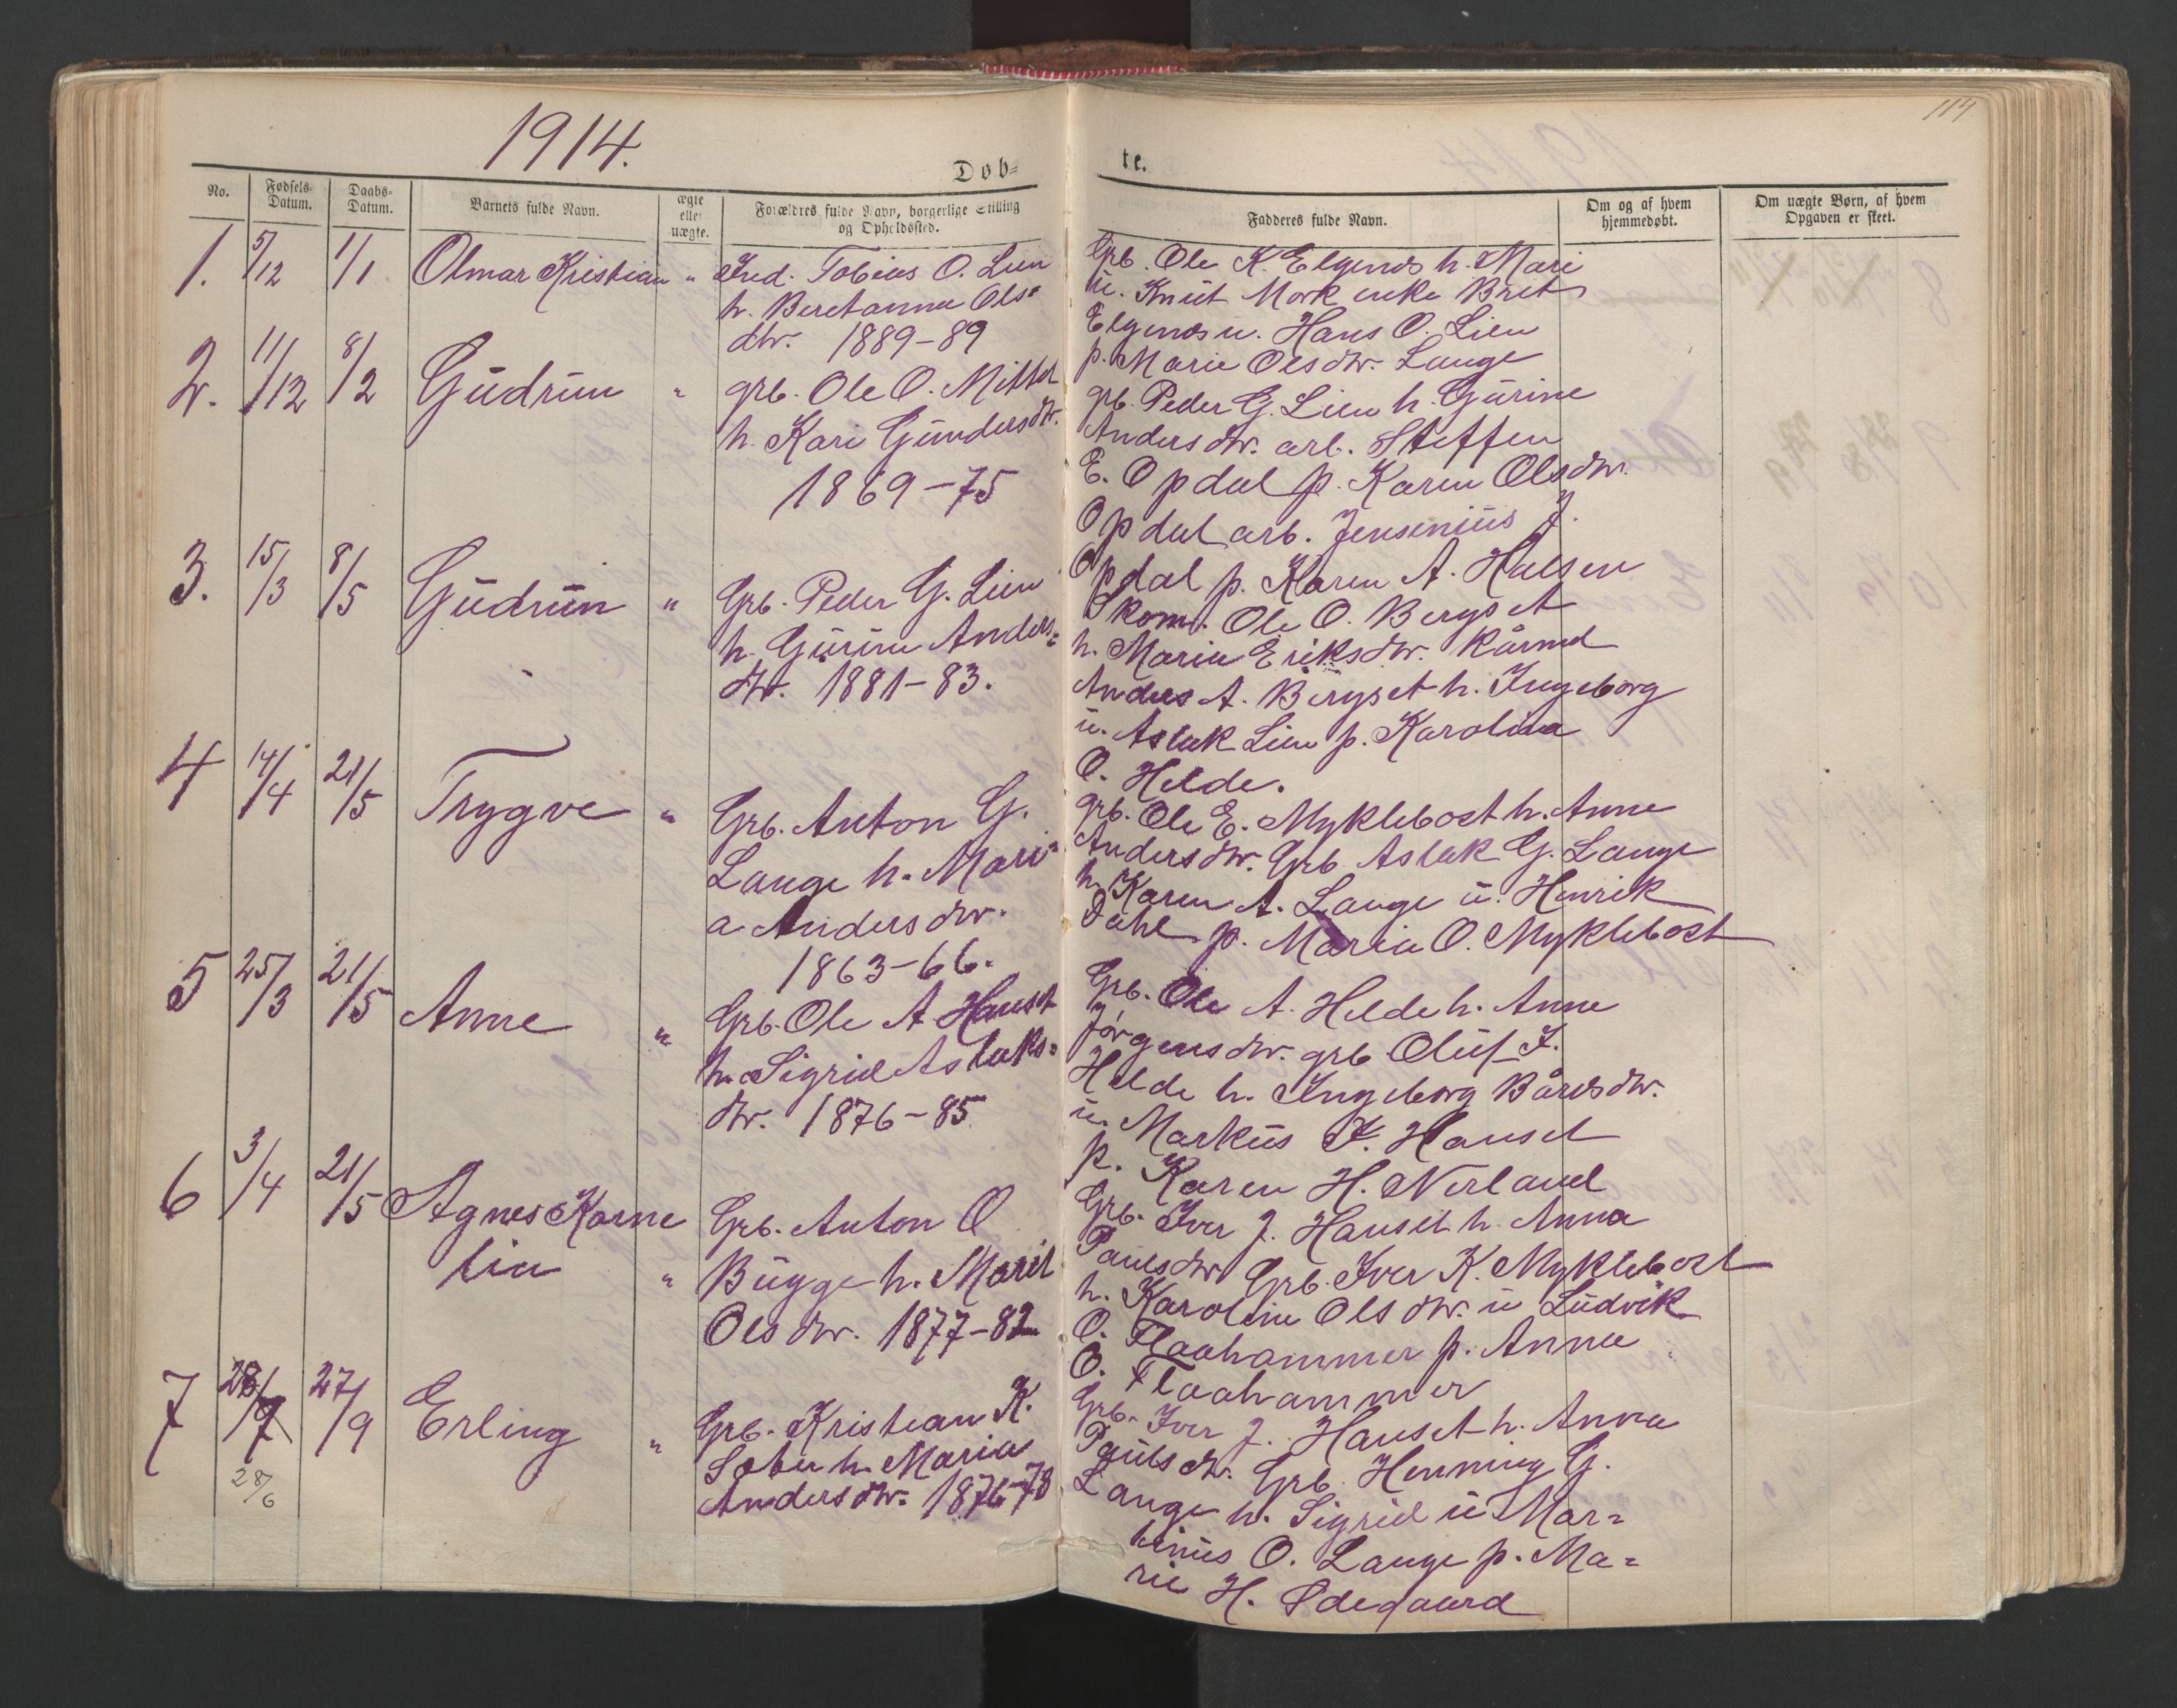 1914.
114
Døb=
te.
No.
Fødsels-
Datum.
Daabs-
Datum.
Barnets fulde Navn.
ægte
eller
uægte.
Forældres fulde Navn, borgerlige Stilling
og Opholdssted.
Fadderes fulde Navn.
Om og af hvem
hjemmedøbt.
Om uægte Børn, af hvem
Opgaven er skeet.
1. 5/12 1/1 Olmar Kristian " Ind. Tobias O. Lien
h. Beret anna Ols=
dtr. 1889-89
Grb. Ole K. Elgenes h. Mari
u. Knut Mork enke Brit
Elgenes u. Hans O. Lien
p. Marie Olsdtr. Lange
2. 11/12 8/2 Gudrun " grb. Ole O. Mittet
h. Kari Gundersdtr.
1869-75
grb. Peder G. Lien h. Gurine
Andersdtr. arb. Steffen
E. Opdal p. Karen Olsdtr.
Opdal arb. Jensenius J.
Opdal p. Karen A. Halsen
3. 15/3 8/5 Gudrun " Grb. Peder G. Lien
h. Gurine Anders=
dtr. 1881-83.
Skom. Ole O. Bergset
h. Marie Eriksdtr. Kårmd
Anders A. Bergset h. Ingeborg
u. Aslak Lien p. Karolina
O. Helde.
4 14/4 21/5 Trygve " Grb. Anton G.
Lange h. Mari=
a Andersdtr.
1863-66.
grb. Ole E. Myklebost h. Anne
Andersdtr. Grb Aslak G. Lange
h. Karen A. Lange u. Henrik
Dahl p. Maria O. Myklebost
5 25/3 21/5 Anne " Grb. Ole A Hauset
h. Sigrid Aslaks=
dtr. 1876-85
Grb. Ole A. Helde h. Anne
Jørgensdtr. grb Oluf I.
Helde h. Ingeborg Bårdsdtr.
u. Markus I. Hauset
p. Karen H. Nerland
6 3/4 21/5 Agnes Karne
lia " Grb. Anton O
Bugge h. Marit
Olsdtr. 1877-82
Grb. Iver J. Hauset h. Anna
Paulsdtr Grb. Iver K. Myklebost
h. Karoline Olsdtr. u Ludvik
O. Flaahammer p. Anna
O. Flaahammer
7 27/9 Erling " Grb. Kristian K.
h. Maria
Andersdtr. 1876-78
28/6
Grb. Iver J. Hauset h. Anna
Paulsdtr. Grb. Henning G.
Lange h. Sigrid u Mar=
tinus O. Lange p. Ma=
rie H. Ødegaard